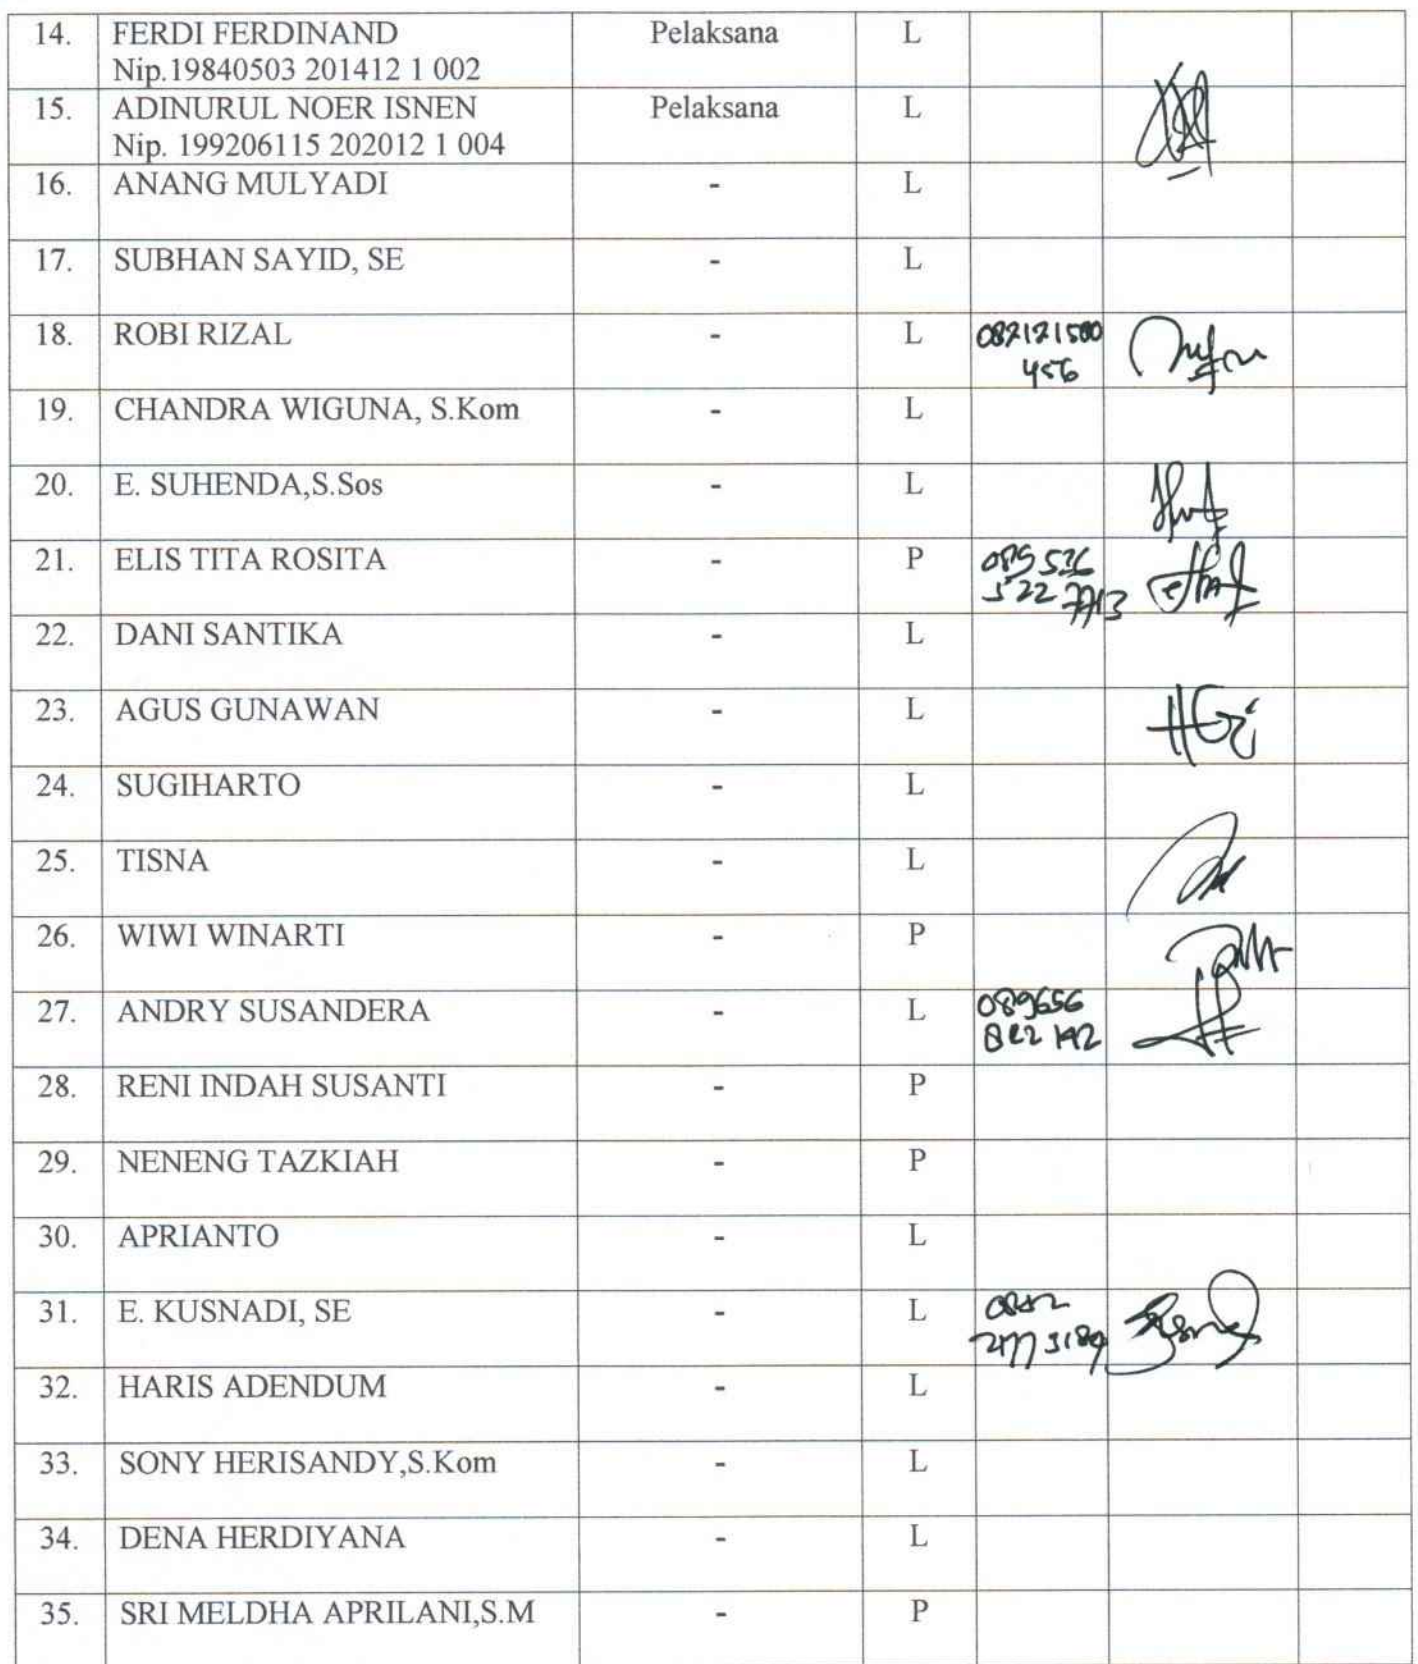 14. FERDI FERDINAND Pelaksana L
Nip.19840503 201412 1 002
15. ADINURUL NOER ISNEN Pelaksana L
Nip. 199206115 202012 1 004
16. ANANG MULYADI - L
17. SUBHAN SAYID, SE - L
18. ROBI RIZAL - L
456
19. CHANDRA WIGUNA, S.Kom - L
20. E. SUHENDA,S.Sos - L
21. ELIS TITA ROSITA - P
22. DANI SANTIKA - L
23. AGUS GUNAWAN - L
24. SUGIHARTO - L
25. TISNA - L
26. WIWI WINARTI - P
27. ANDRY SUSANDERA - L 089656
28. RENI INDAH SUSANTI - P
29. NENENG TAZKIAH - P
30. APRIANTO - L
31. E. KUSNADI, SE - L
32. HARIS ADENDUM - L
33. SONY HERISANDY,S.Kom - L
34. DENA HERDIYANA - L
35. SRI MELDHA APRILANI,S.M - P